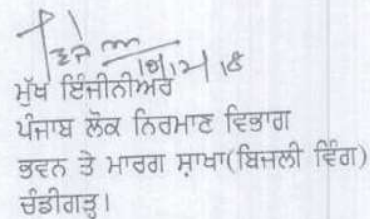 19/12/18
ਮੁੱਖ ਇੰਜੀਨੀਅਰ
ਪੰਜਾਬ ਲੋਕ ਨਿਰਮਾਣ ਵਿਭਾਗ
ਭਵਨ ਤੇ ਮਾਰਗ ਸ਼ਾਖਾ(ਬਿਜਲੀ ਵਿੰਗ)
ਚੰਡੀਗੜ੍ਹ।